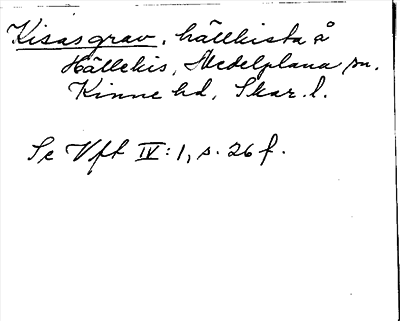 Kisasgrav, hällkista å
Hällekis, Medelplana sn.
Kinne hd, Skar. l.
Se Vft IV:1, s. 26 f.